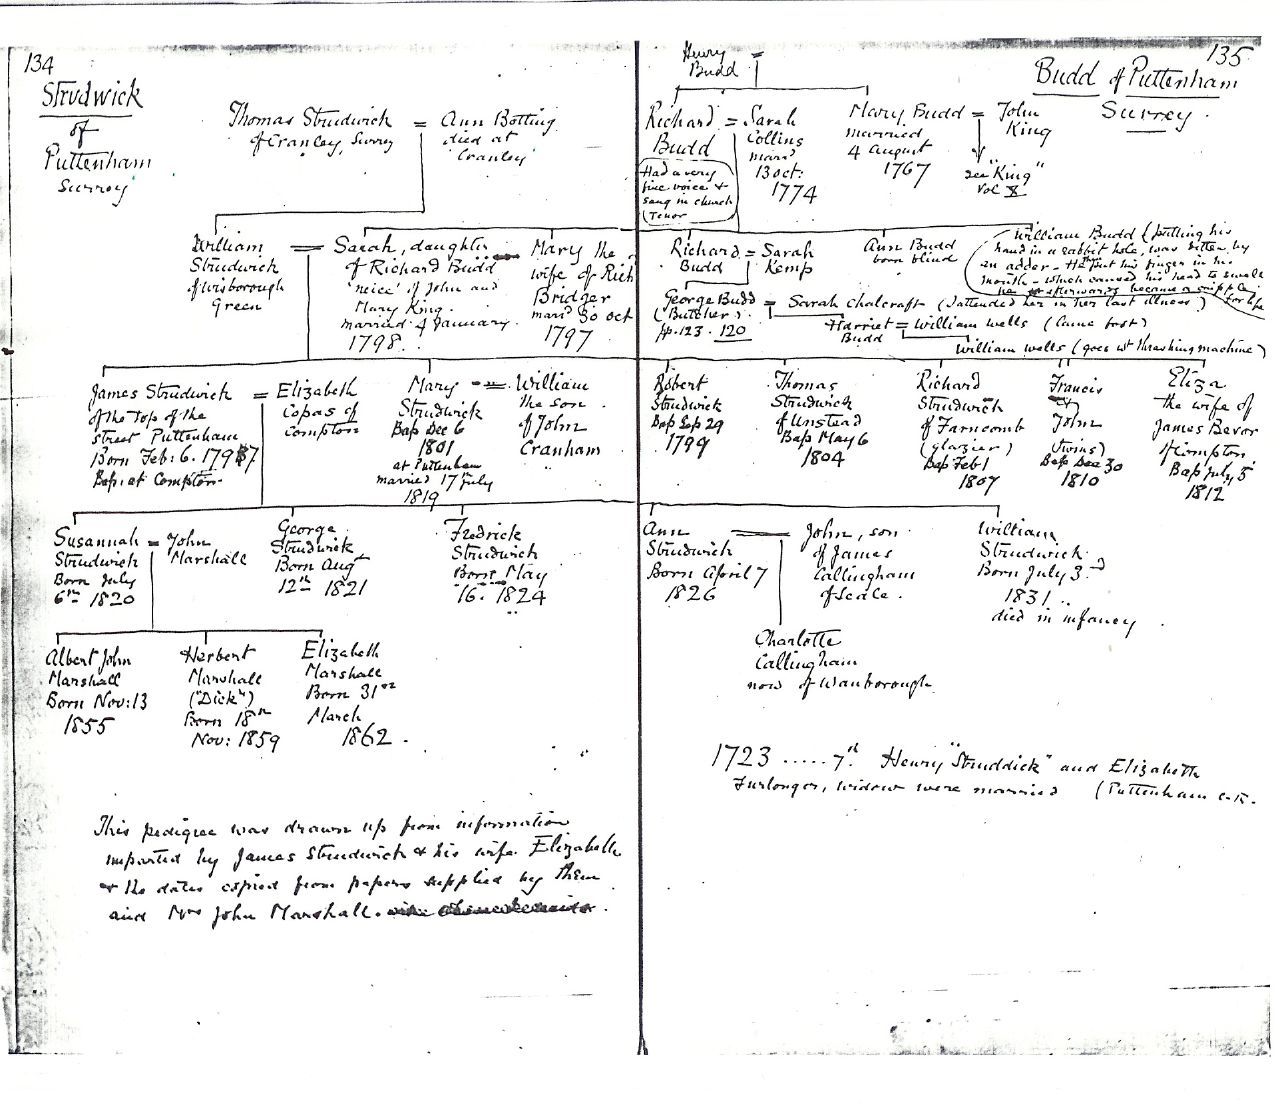 134
Strudwick
of
Puttenham
Surrey
Thomas Strudwick
of Cranley, Surrey
=
Ann Botting
died at
Cranley
William
Strudwick
of Wisborough
Green
=
Sarah, daughter
of Richard Budd
'neice' of John and
Mary King.
married 4 January
1798.
Mary the
wife of Rich
Bridger
mard 30 oct
1797
James Strudwick
of the Top of the
street Puttenham
Born Feb: 6. 1797
Bap: at Compton.
=
Elizabeth
Copas of
Compton
Mary
Strudwick
Bap Dec 6
1801
at Puttenham
married 17 July
1819
=
William
the son
of John
Cranham
Susannah
Strudwick
Born July
6th 1820
=
John
Marshall
George
Strudwick
Born Aug
12th 1821
Fredrick
Strudwick
Born May
16. 1824
Albert John
Marshall
Born Nov: 13
1855
Herbert
Marshall
("Dick")
Born 18th
Nov: 1859
Elizabeth
Marshall
Born 31st
March
1862.
This pedigree was drawn up from information
imparted by James Strudwick & his wife Elizabeth
& the dates copied from papers supplied by them
and Mrs John Marshall.
135
Budd of Puttenham
Surrey.
Henry
Budd
=
Richard
Budd
Had a very
fine voice &
sang in church
(Tenor
=
Sarah
Collins
mard
13 oct:
1774
Mary Budd
married
4 August
1767
=
John
King
see "King"
Vol X
Richard
Budd
=
Sarah
Kemp
Ann Budd
born blind
William Budd (putting his
hand in a rabbit hole, was bitten by
an adder - He put his finger in his
mouth - which caused his head to swell
he afterwards became a cripple
for life
George Budd
(Butcher)
pp. 123. 120
=
Sarah Chalcraft (I attended her in her last illness)
Harriet
Budd
=
William Wells (Came first)
William Wells (goes wt thrashing machine)
Robert
Strudwick
Bap Sep 29
1799
Thomas
Strudwick
of Unstead
Bap May 6
1804
Richard
Strudwick
of Farncomb
(glazier)
Bap Feb 1
1807
Francis
&
John
(twins)
Bap Dec 30
1810
Eliza
the wife of
James Bevor
of Compton
Bap July 5
1812
Ann
Strudwick
Born April 7
1826
=
John, son
of James
Callingham
of Seale.
William
Strudwick
Born July 3rd
1831..
died in infancy
Charlotte
Callingham
now of Wanborough
1723 ..... 7th. Henry "Struddick" and Elizabeth
Furlonger, widow were married (Puttenham